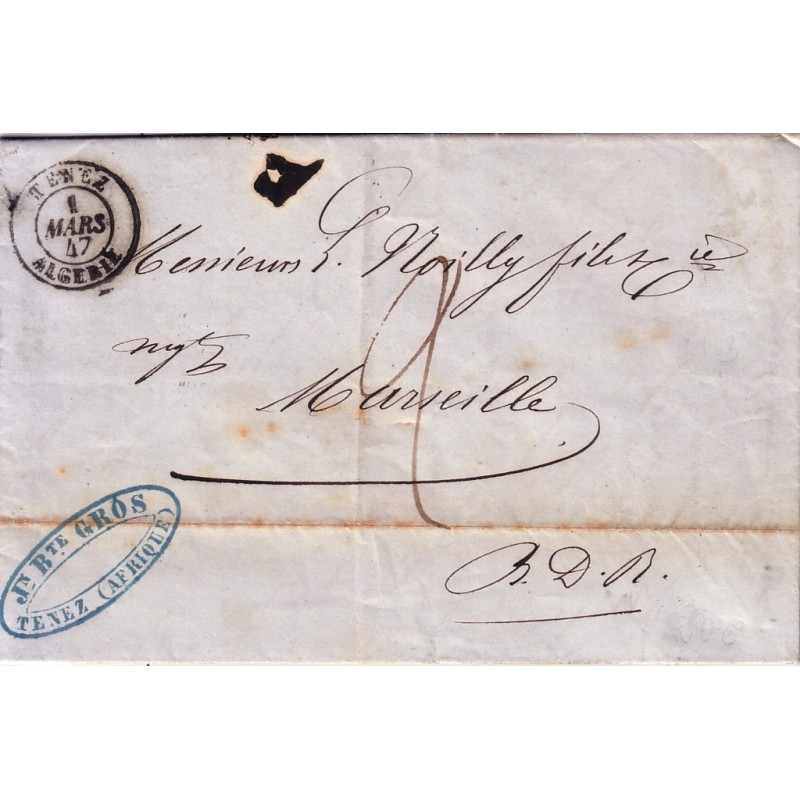 TENEZ
1
MARS
47
ALGERIE
Messieurs L. Noilly fils & Cie
ngts
Marseille
2
B. D. R.
JN BTE GROS
TENEZ (AFRIQUE)